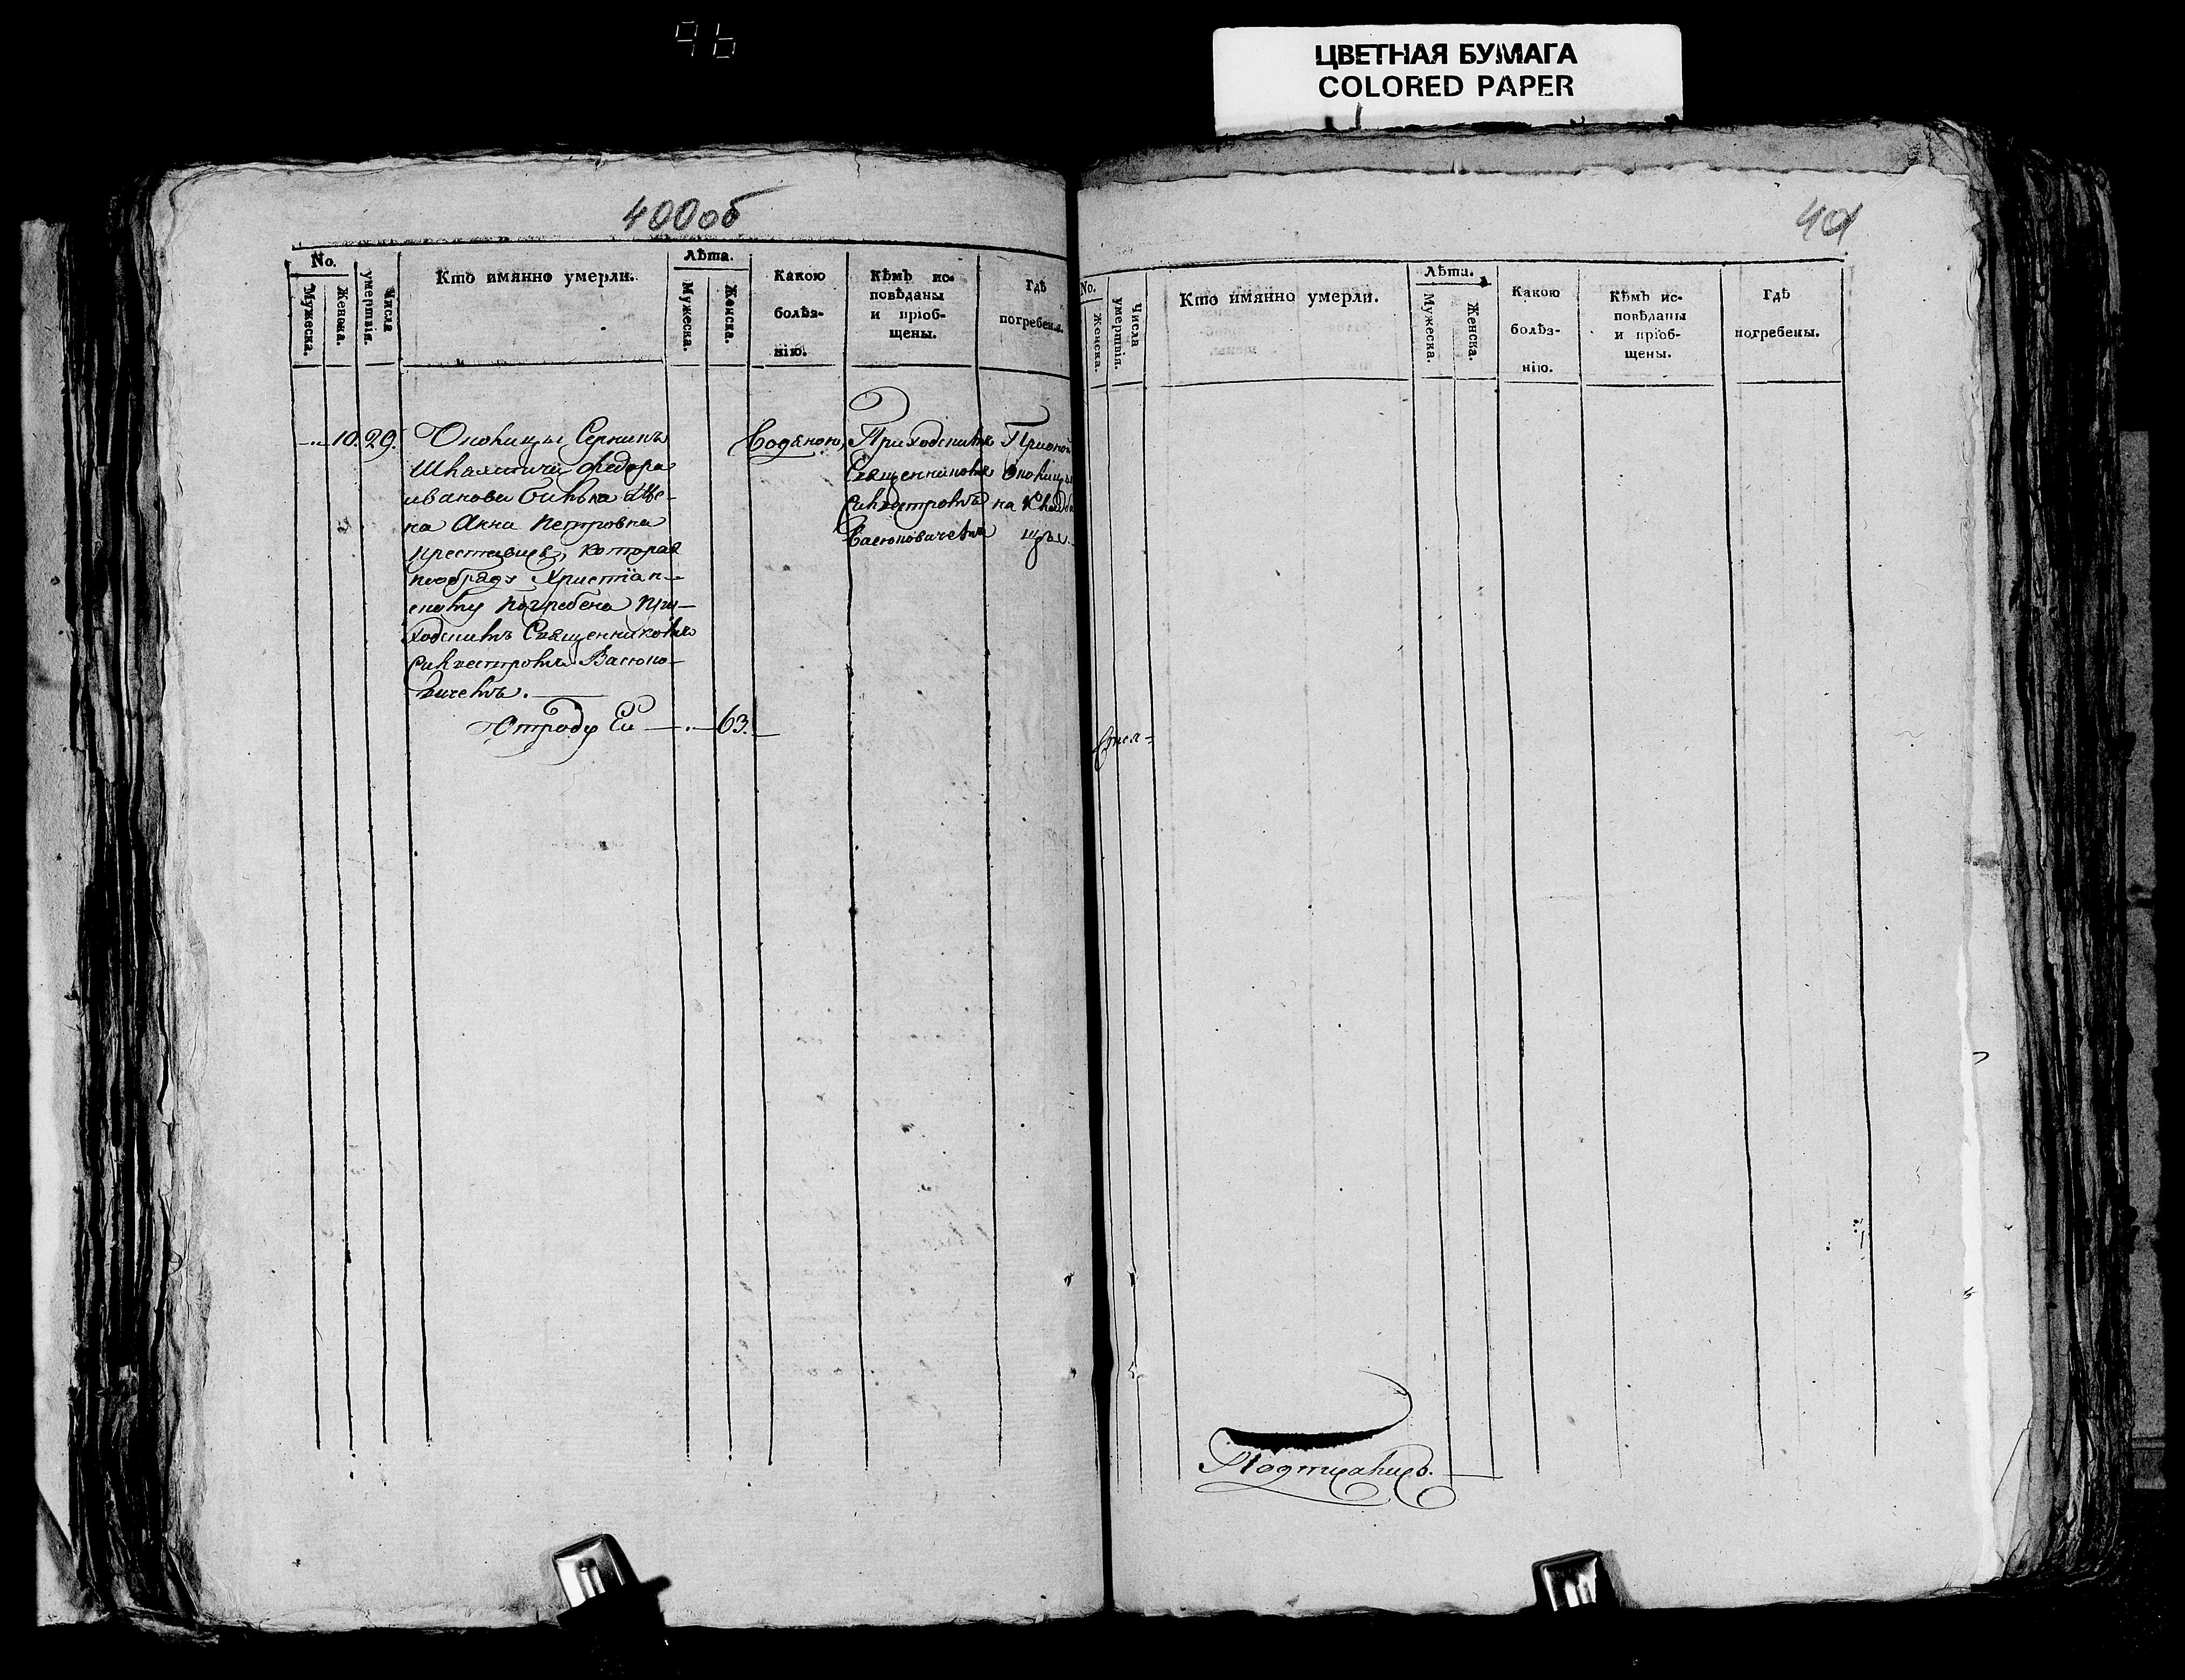 ЦВЕТНАЯ БУМАГА
COLORED PAPER
96
400об
No.
Мужеска.
Женска.
Числа умертвія.
Кто имянно умерли.
Лѣта.
Мужеска.
Женска.
Какою болѣз-
нію.
Кѣмъ ис-
повѣданы
и пріоб-
щены.
Гдѣ
погребены.
10. 29.
Околицы
Шкля Федора
иванова сынъ Же-
на Анна Петровна
преставись, которая
пообряду Христіан-
скому погребена При-
ходскимъ Священникомъ
Силвестромъ Васюко-
вичемъ.
Отроду Ей 63.
Водяною,
Приходскимъ
Священникомъ
Силвестромъ
Васюковичемъ
Околицы
на Кладби
щѣ.
401
No.
Женска.
Числа умертвія.
Кто имянно умерли.
Лѣта.
Мужеска.
Женска.
Какою
болѣз-
нію.
Кѣмъ ис-
повѣданы
и пріоб-
щены.
Гдѣ
погребены.